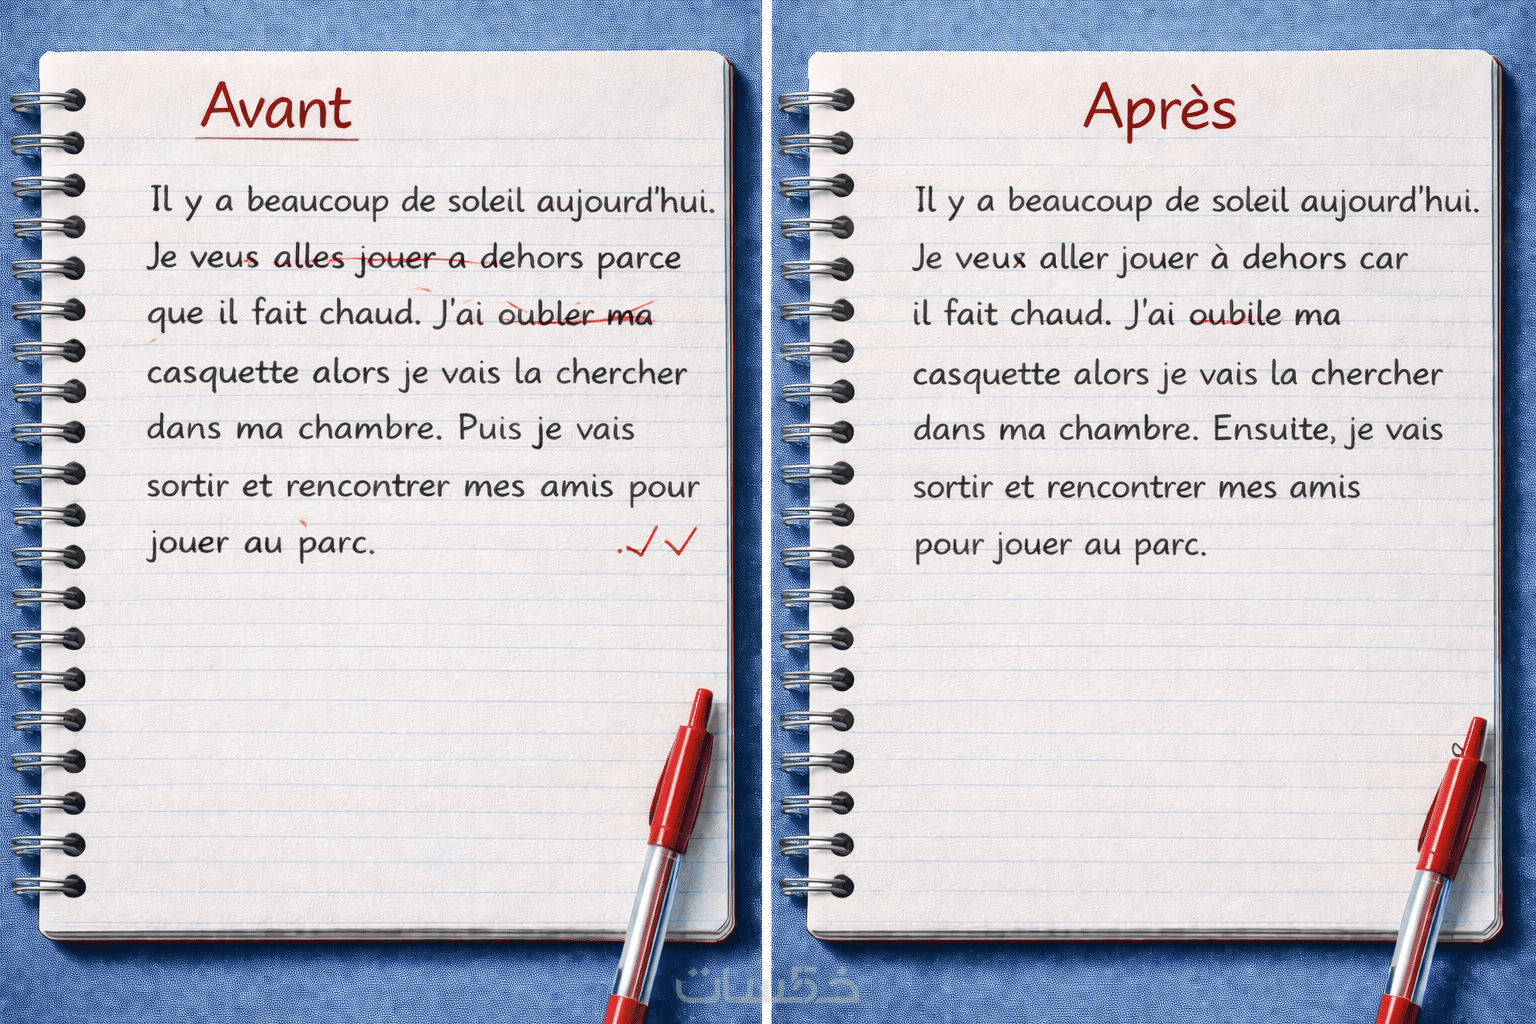 Avant
Il y a beaucoup de soleil aujourd'hui.
Je veus alles jouer a dehors parce
que il fait chaud. J'ai oubler ma
casquette alors je vais la chercher
dans ma chambre. Puis je vais
sortir et rencontrer mes amis pour
jouer au parc.
Après
Il y a beaucoup de soleil aujourd'hui.
Je veux aller jouer à dehors car
il fait chaud. J'ai oubile ma
casquette alors je vais la chercher
dans ma chambre. Ensuite, je vais
sortir et rencontrer mes amis
pour jouer au parc.
خمسات